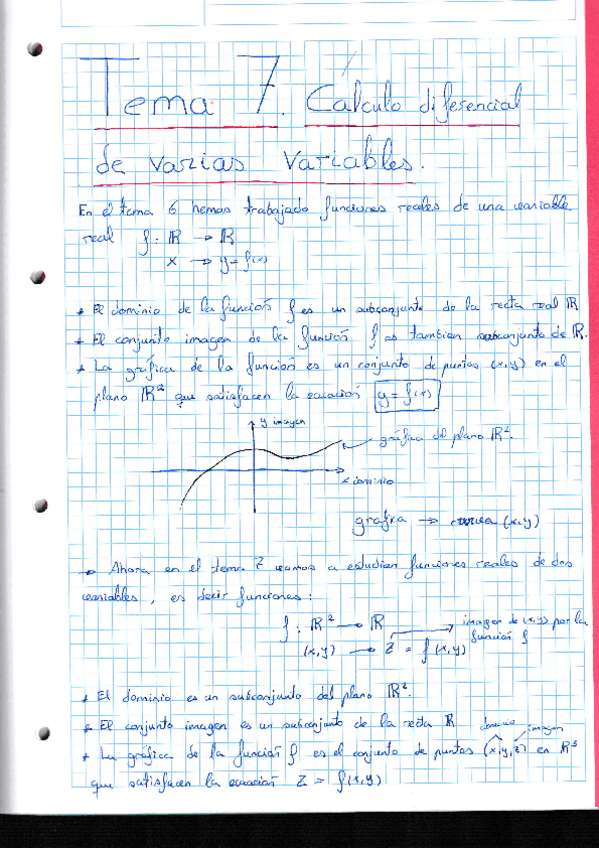 Tema 7. Cálculo diferencial
de varias variables.
En el tema 6 hemos trabajado funciones reales de una variable
real f: ℝ → ℝ
x → y = f(x)
* El dominio de la función f es un subconjunto de la recta real ℝ
* El conjunto imagen de la función f es tambien subconjunto de ℝ.
* La gráfica de la función es un conjunto de puntos (x,y) en el
plano ℝ² que satisfacen la ecuación y = f(x)
y imagen
gráfica del plano ℝ².
x dominio
grafica → curva (x,y)
→ Ahora en el tema 7 vamos a estudiar funciones reales de dos
variables, es decir funciones:
f: ℝ² → ℝ
imagen de (x,y) por la
función f
(x,y) → z = f(x,y)
* El dominio es un subconjunto del plano ℝ².
* El conjunto imagen es un subconjunto de la recta ℝ
dominio imagen
* La gráfica de la función f es el conjunto de puntos (x,y,z) en ℝ³
que satisfacen la ecuación z = f(x,y)